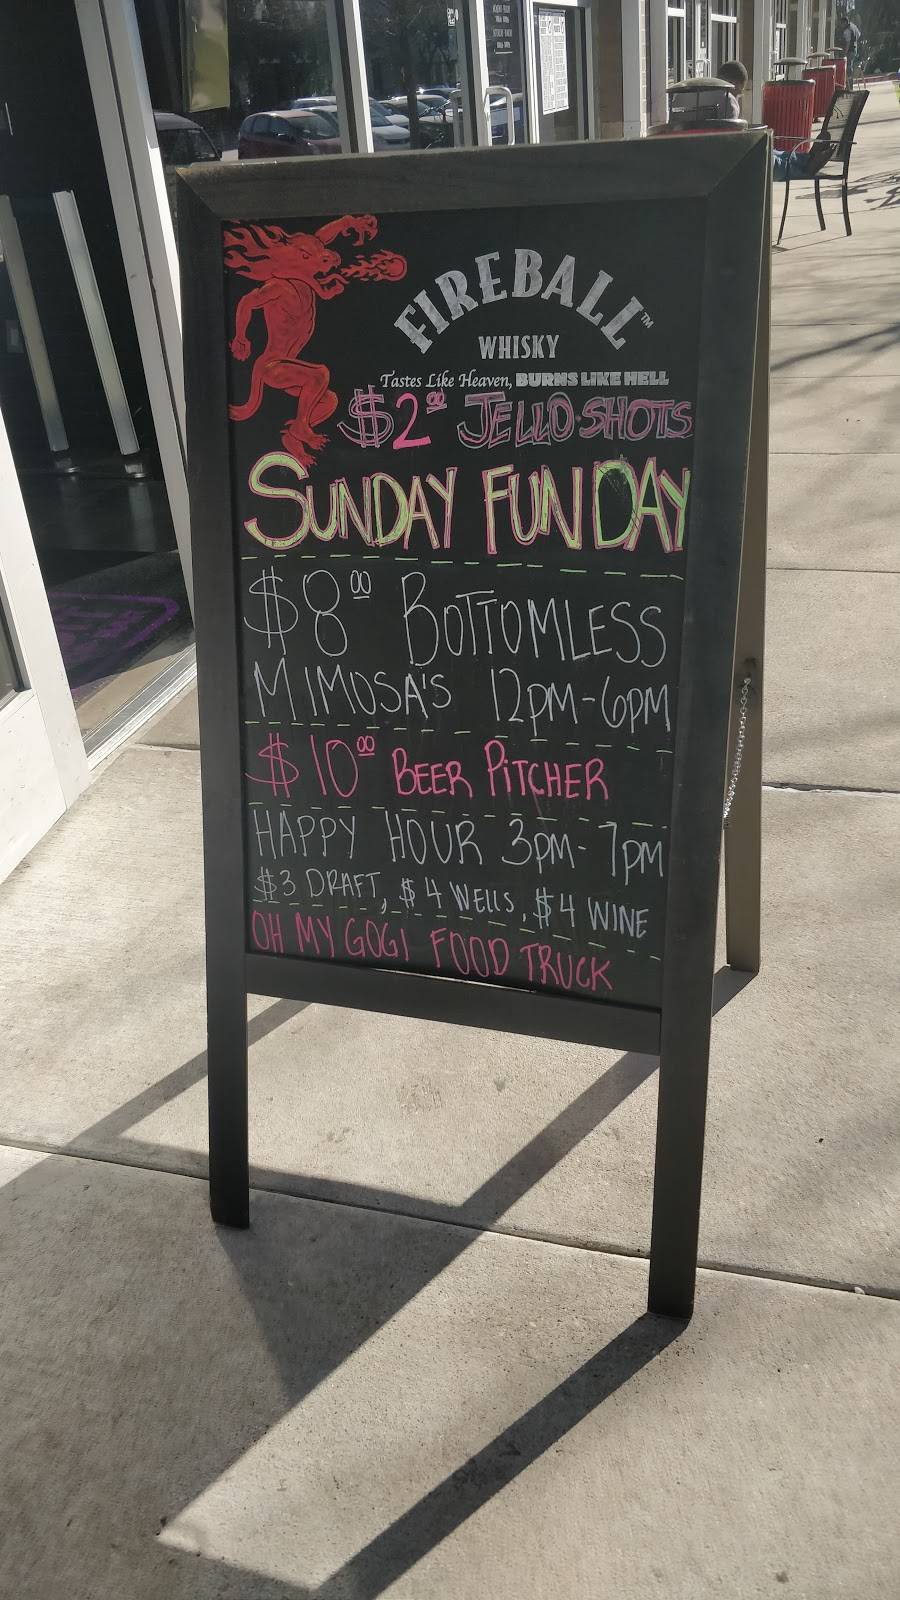 FIREBALL™
WHISKY
Tastes Like Heaven, BURNS LIKE HELL
$2.00 JELLO SHOTS
SUNDAY FUNDAY
$8.00 BOTTOMLESS
MIMOSA'S 12PM-6PM
$10.00 BEER PITCHER
HAPPY HOUR 3PM-7PM
$3 DRAFT, $4 WELLS, $4 WINE
OH MY GOGI FOOD TRUCK